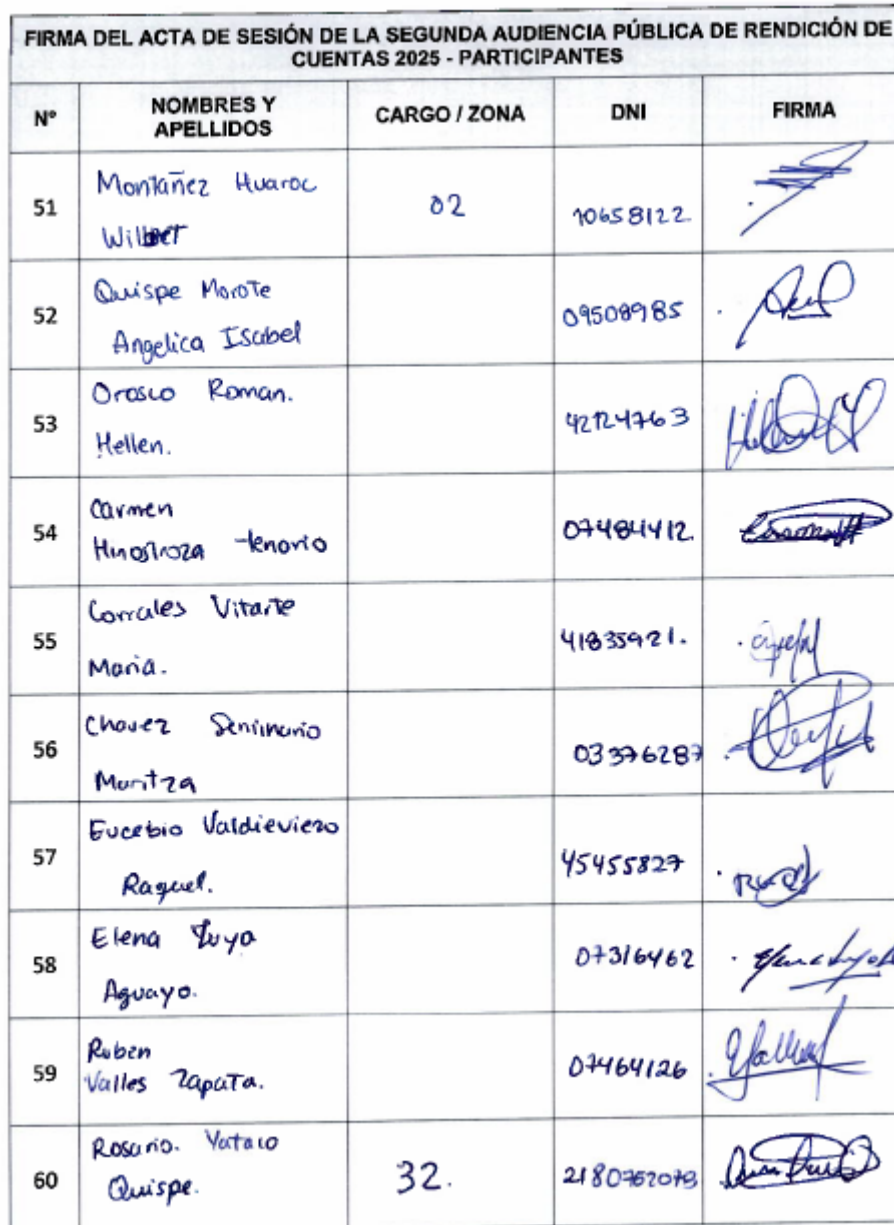 FIRMA DEL ACTA DE SESIÓN DE LA SEGUNDA AUDIENCIA PÚBLICA DE RENDICIÓN DE
CUENTAS 2025 - PARTICIPANTES
N° NOMBRES Y APELLIDOS CARGO / ZONA DNI FIRMA
51 Montañez Huaroc
Wilbert 02 10658122
52 Quispe Morote
Angelica Isabel 09508985
53 Orosco Roman.
Hellen. 42124763
54 Carmen
Hinostroza Tenorio 07484412.
55 Corrales Vitarte
Maria. 41835921.
56 Chavez Seminario
Maritza 03376287
57 Eucebio Valdieviezo
Raquel. 45455827
58 Elena Luya
Aguayo. 07316462
59 Ruben
Valles Zapata. 07464126
60 Rosario. Yataco
Quispe. 32.